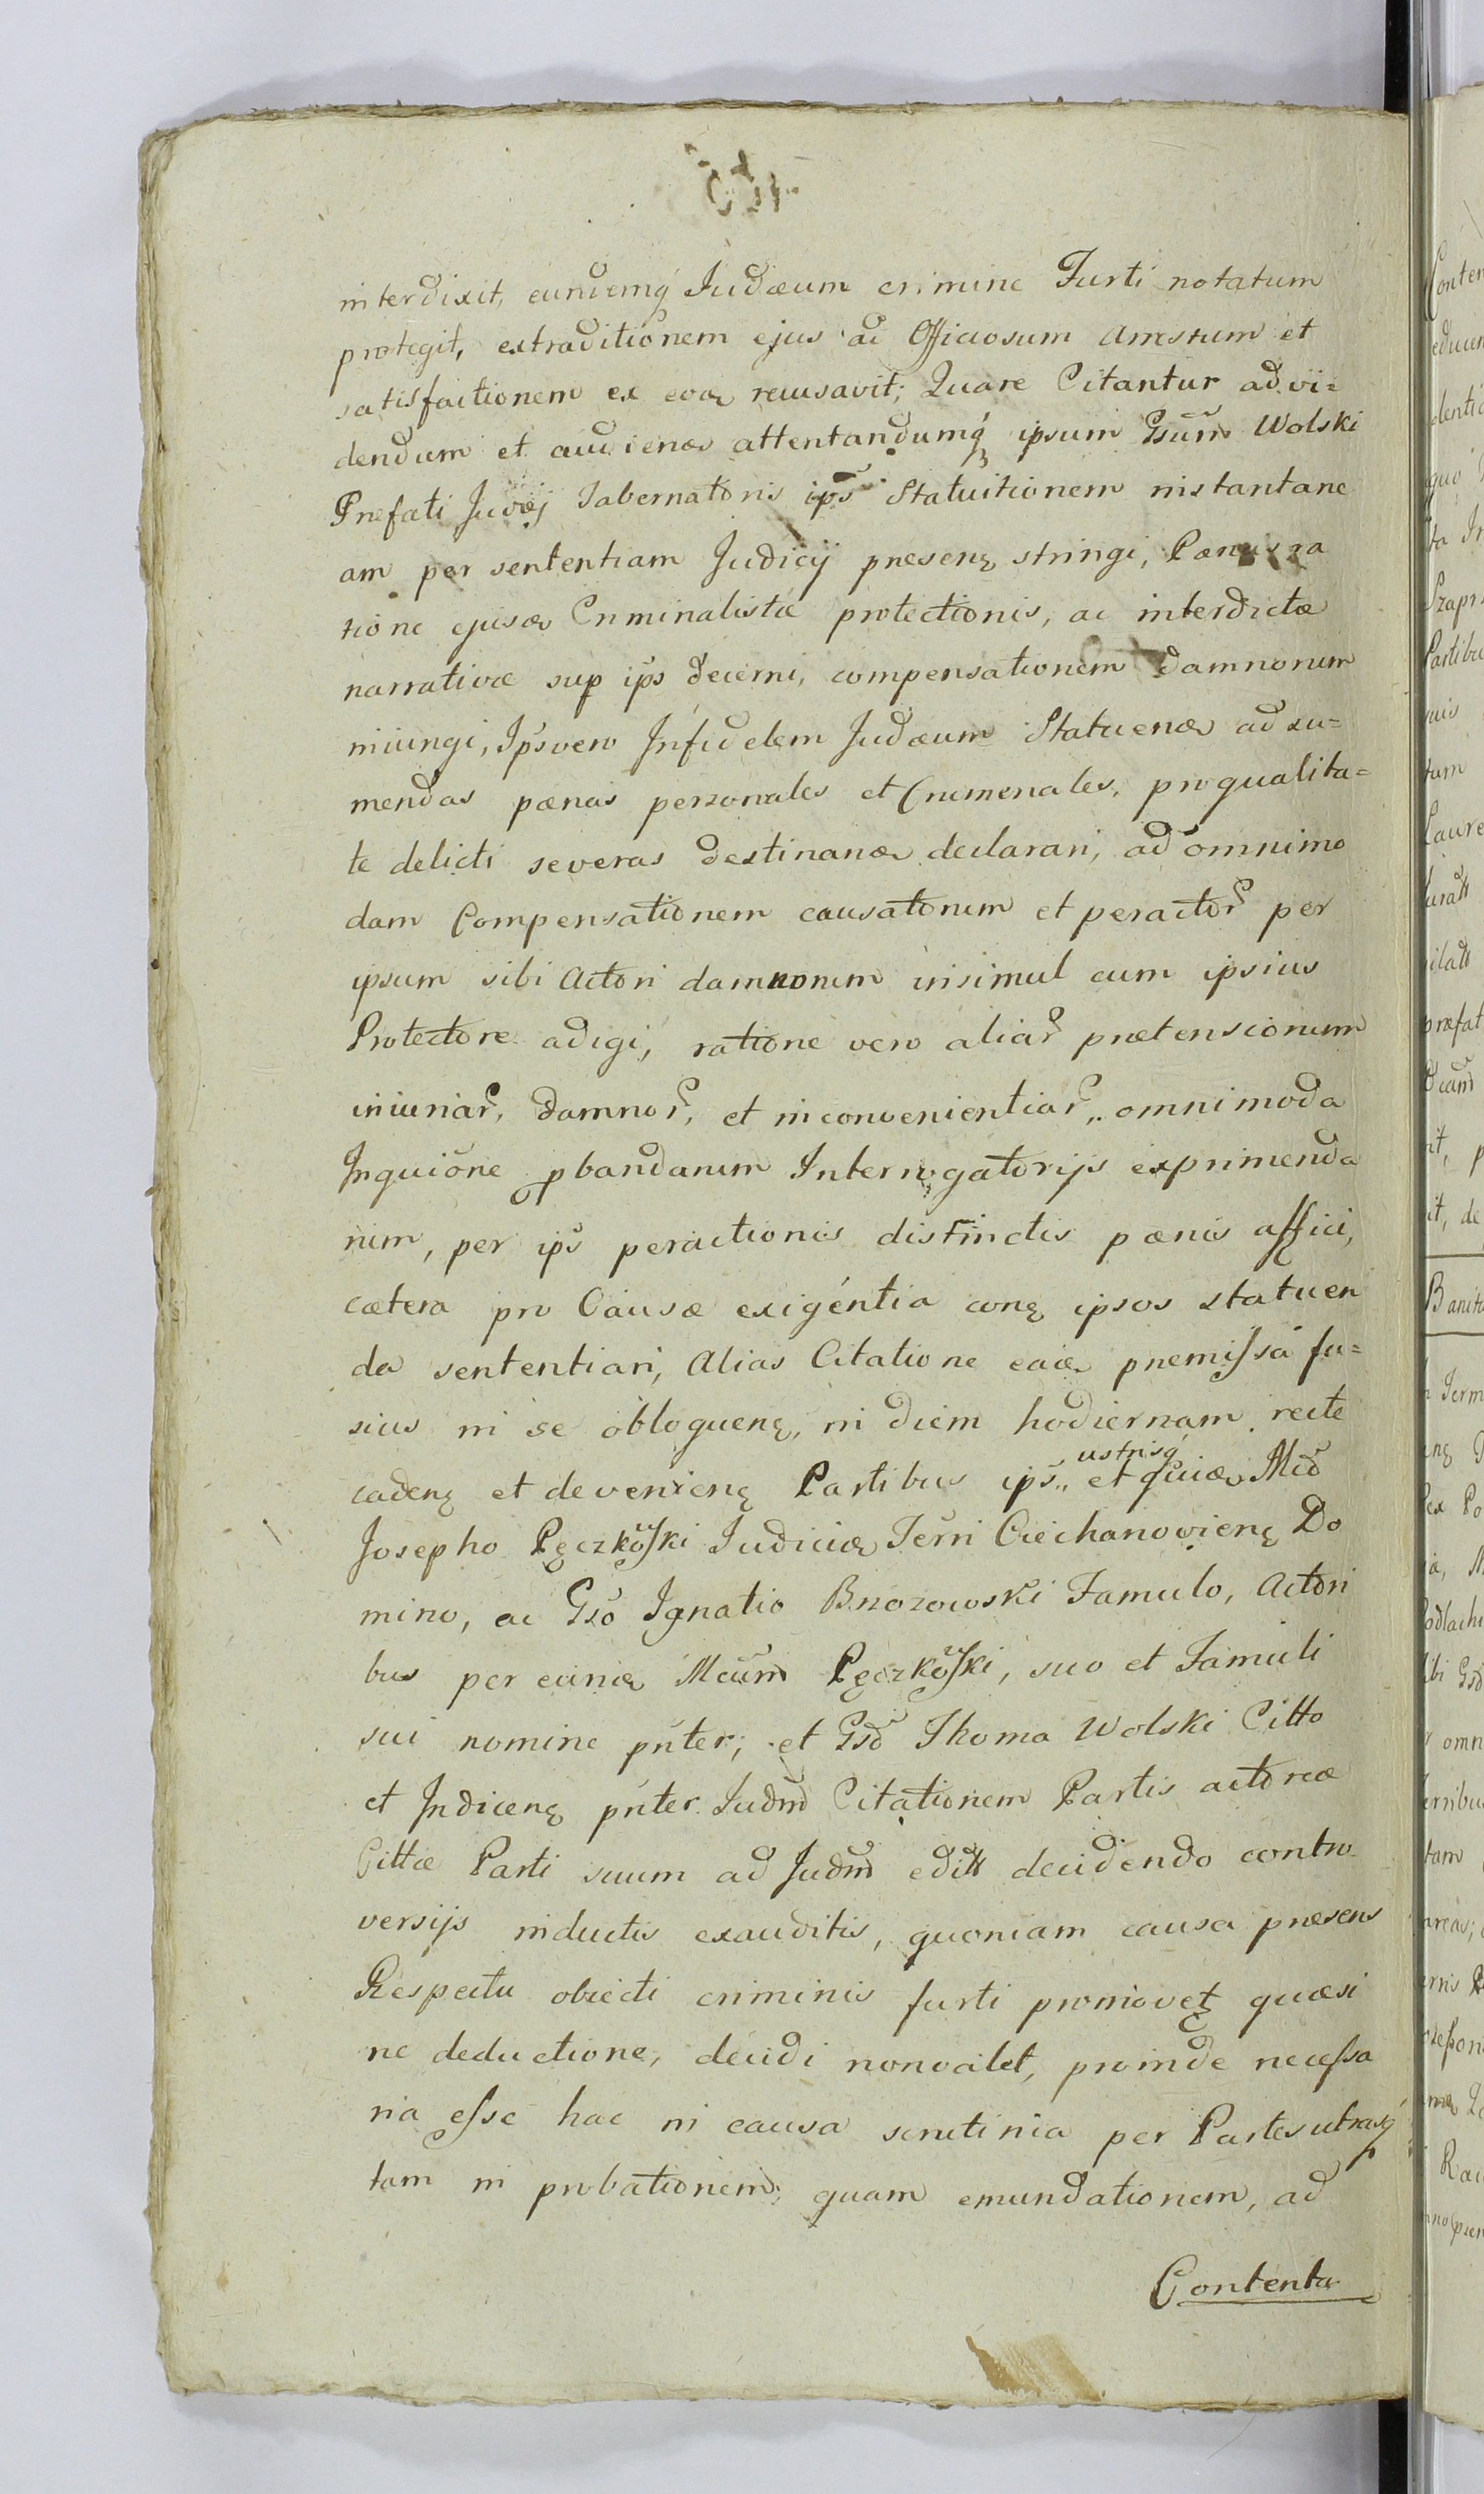 interdixit, eundemq́ Judæum crimine Furti notatum
protegit, extraditionem ejus ad Officiosum Arrestum et
satisfactionem ex eod recusavit; Quare Citantur ad vi=
dendum et audiend attentandumq́ ipsum Gsum̃ Wolski
Præfati Judæj Tabernatoris ips̃ Statuitionem instantane
am per sententiam Judicij præsenę stringi, Pœnas ra
tione ejusd Criminalistæ protectionis, ac interdictæ
narrativæ sup ips̃ decerni, compensationem damnorum
iniungi, Ips̃ vero Infidelem Judæum Statuend ad su=
mendas pœnas personales et Crimenales, pro qualita=
te delicti severas destinand declarari, ad omnimo
dam Compensationem causatorum et peractoꝝ per
ipsum sibi Actori damnorum insimul cum ipsius
Protectore adigi, ratione vero aliaꝝ prætensionum
iniuriaꝝ, damnoꝝ, et inconvenientiaꝝ, omnimoda
Inquiõne pbandarum Interrogatorijs exprimenda
rum, per ips̃ peractionis distinctis pœnis affici,
cætera pro Causæ exigéntia conę ipsos statuen
da sententiari, Alias Citatione ead præmissa fu=
sius in se obloquenę, in diem hodiernam recte
cadenę et devenienę Partibus ips̃ .. et quid Mcõ
ustrisq́
Josepho Pęczkoſki Judicid Terri Ciechanovienę Do
mino, ac Gsõ Ignatio Brzozowski Famulo, Actori
bus per eund Mcum̃ Pęczkoſki, suo et Famuli
sui nomine pńter; et Gsõ Thoma Wolski Citto
et Indicenę pńter. Judm̃ Citationem Partis actoreæ
Cittæ Parti suum ad Judm̃ editt decidendo contro
versijs inductis exauditis, quoniam causa præsens
Respectu obiecti criminis furti promovetę quæ si
ne deductione, decidi non valet, proinde necessa
ria esse hac in causa scrutinia per Partes utrasq́
tam in probationem quam emundationem, ad
Contenta